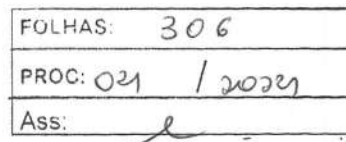 FOLHAS: 306
PROC: 021 / 2024
Ass: